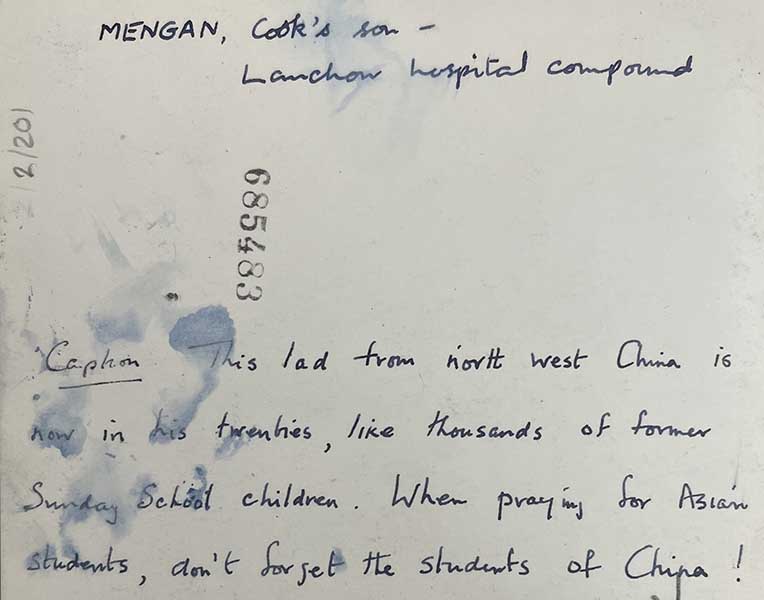 MENGAN, Cook's son -
Lanchow hospital compound
2/201
685483
Caption This lad from north west China is
now in his twenties, like thousands of former
Sunday School children. When praying for Asian
students, don't forget the students of China!